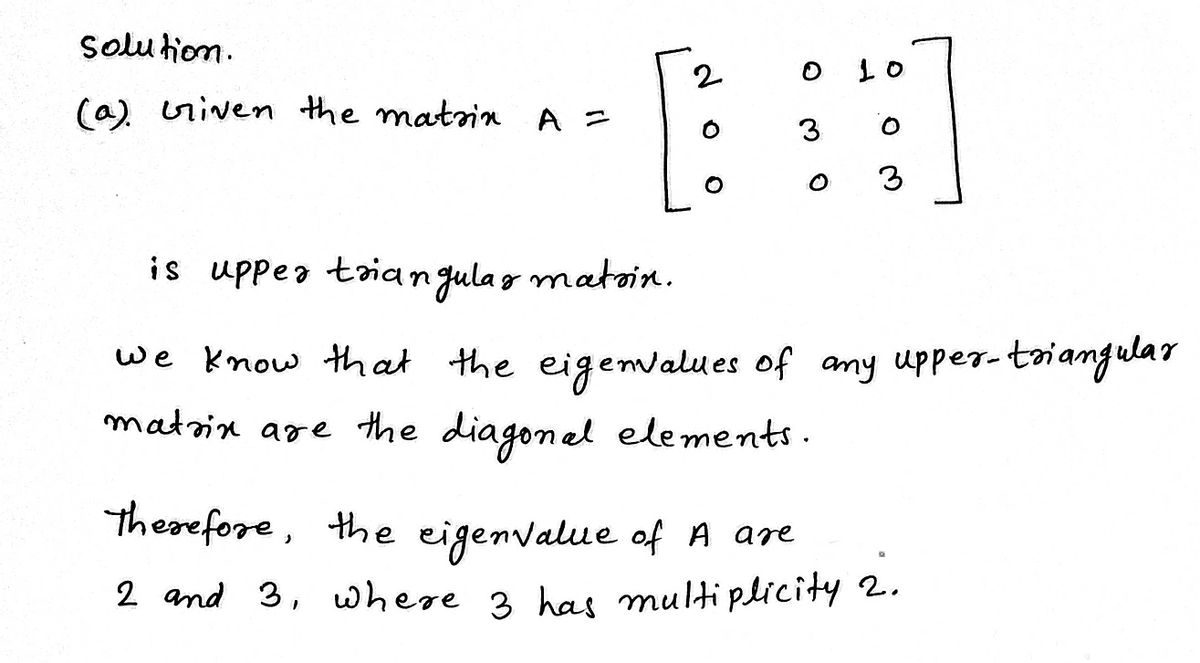 Solution.
(a). Given the matrix A = [2 0 10
0 3 0
0 0 3]
is upper triangular matrix.
we know that the eigenvalues of any upper-triangular
matrix are the diagonal elements.
Therefore, the eigenvalue of A are
2 and 3, where 3 has multiplicity 2.